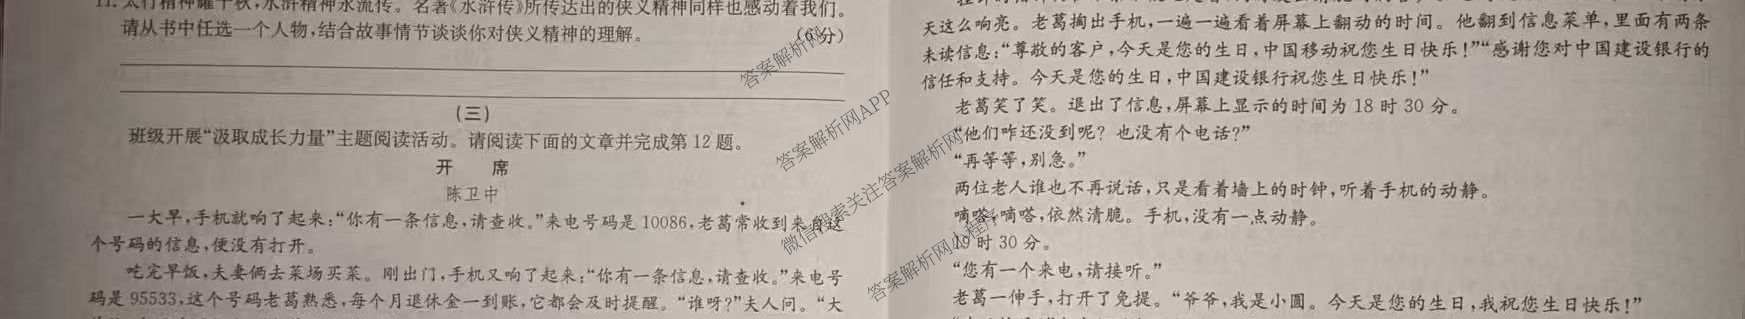 11. 太行精神耀千秋,水浒精神永流传。名著《水浒传》所传达出的侠义精神同样也感动着我们。
请从书中任选一个人物,结合故事情节谈谈你对侠义精神的理解。 (6分)
(三)
班级开展“汲取成长力量”主题阅读活动。请阅读下面的文章并完成第 12 题。
开 席
陈卫中
一大早,手机就响了起来:“你有一条信息,请查收。”来电号码是 10086,老葛常收到来自这
个号码的信息,便没有打开。
吃完早饭,夫妻俩去菜场买菜。刚出门,手机又响了起来:“你有一条信息,请查收。”来电号
码是 95533,这个号码老葛熟悉,每个月退休金一到账,它都会及时提醒。“谁呀?”夫人问。“大
天这么响亮。老葛掏出手机,一遍一遍看着屏幕上翻动的时间。他翻到信息菜单,里面有两条
未读信息:“尊敬的客户,今天是您的生日,中国移动祝您生日快乐!”“感谢您对中国建设银行的
信任和支持。今天是您的生日,中国建设银行祝您生日快乐!”
老葛笑了笑。退出了信息,屏幕上显示的时间为 18 时 30 分。
“他们咋还没到呢? 也没有个电话?”
“再等等,别急。”
两位老人谁也不再说话,只是看着墙上的时钟,听着手机的动静。
嘀嗒,嘀嗒,依然清脆。手机,没有一点动静。
19 时 30 分。
“您有一个来电,请接听。”
老葛一伸手,打开了免提。“爷爷,我是小圆。今天是您的生日,我祝您生日快乐!”
答案解析网
答案解析网APP
微信搜索关注答案解析网
答案解析网小程序